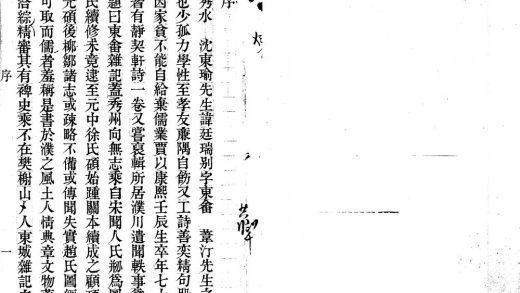 序
秀水 沈東瑜先生諱廷瑞别字東畬 葦汀先生之
也少孤力學性至孝友廉隅自飭又工詩善奕精句股
因家貧不能自給棄儒業賈以康熙壬辰生卒年七十
著有靜契軒詩一卷又嘗裒輯所居濮川遺聞軼事
題曰東畬雜記蓋秀州向無志乘自宋聞人氏鄉爲圖
氏續修未竟逮至元中徐氏碩始踵關本續成之顧
元碩後柳鄒諸志或疎略不備或傳聞失實趙氏圖經
可取而儒者羞稱是書於濮之風土人情典章文物
洽綜精審其有裨史乘不在樊榭山人東城雜記
序 一